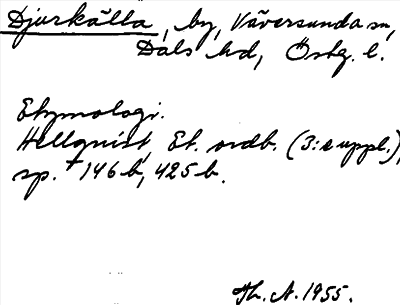 Djurkälla, by, Väversunda sn,
Dals hd, Östg. l.
Etymologi.
Hellquist, Et. ordb. (3:e uppl.),
sp. 146 b, 425 b.
Th. A. 1955.